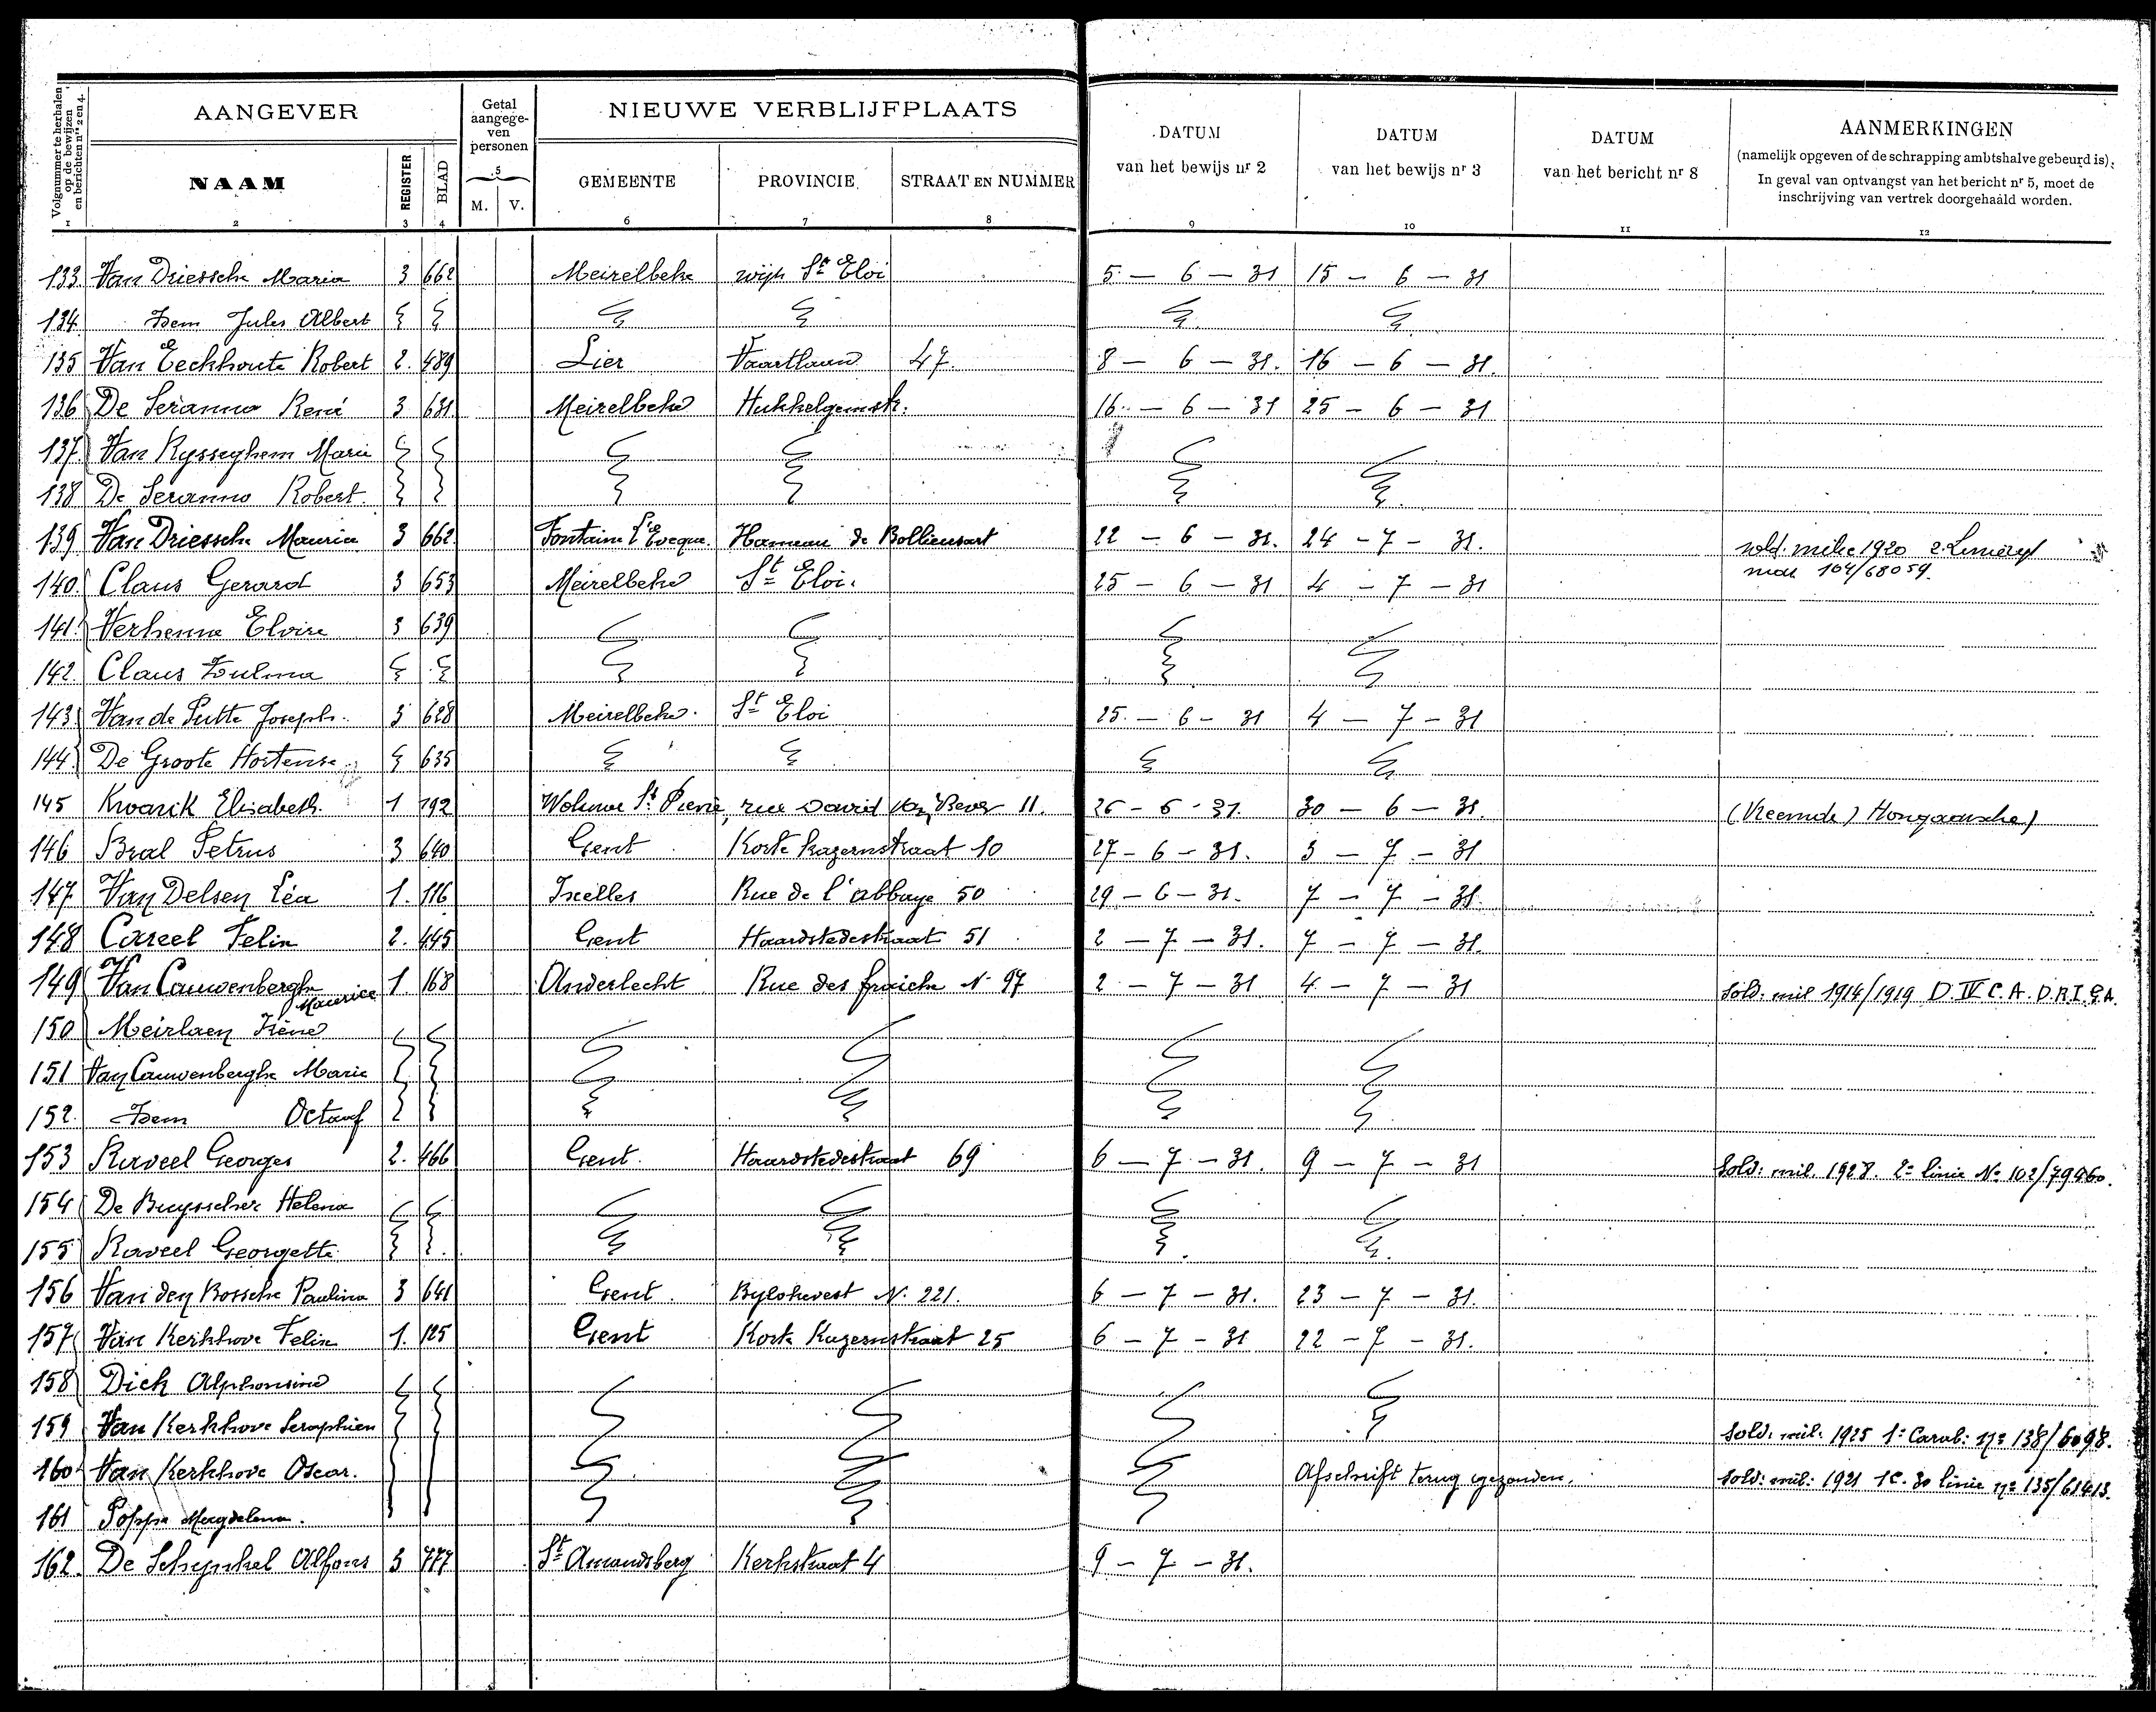 Volgnummer te herhalen op de bewijzen en berichten nrs 2 en 4.
AANGEVER
Getal aangegeven personen
NIEUWE VERBLIJFPLAATS
DATUM van het bewijs nr 2
DATUM van het bewijs nr 3
DATUM van het bericht nr 8
AANMERKINGEN
(namelijk opgeven of de schrapping ambtshalve gebeurd is).
In geval van ontvangst van het bericht nr 5, moet de
inschrijving van vertrek doorgehaald worden.
NAAM REGISTER BLAD 5 M. V. GEMEENTE PROVINCIE STRAAT EN NUMMER
1 2 3 4 6 7 8 9 10 11 12
133. Van Driessche Maria 3 662 Meirelbeke wijk St Eloi 5 - 6 - 31 15 - 6 - 31
134. Idem Jules Albert
135 Van Eeckhoute Robert 2. 489 Lier Vaartlaan 47. 8 - 6 - 31. 16 - 6 - 31.
136 De Seranno René 3 631 Meirelbeke Hukkelgemstr. 16 - 6 - 31 25 - 6 - 31
137 Van Rysseghem Marie
138 De Seranno Robert
139 Van Driessche Maurice 3 662 Fontaine l'Eveque. Hameau de 22 - 6 - 31. 24 - 7 - 31. sold. milic 1920
104/68059.
140 Claus Gerard 3 653 Meirelbeke St Eloi. 25 - 6 - 31 4 - 7 - 31
141 Verhenne Elvire 3 639
142. Claus Zulma
143 Van de Putte Joseph 3 628 Meirelbeke. St Eloi 25. - 6 - 31 4 - 7 - 31
144 De Groote Hortense 635
145 Kwarik Elisabeth 1 192 Woluwe St Pierre, rue David Van Bever 11. 26 - 6 - 31. 30 - 6 - 31. (Vreemde) Hongaarsche)
146 Bral Petrus 3 640 Gent Korte Kazernstraat 10 27 - 6 - 31. 3 - 7 - 31
147 Van Delsen Léa 1. 116 Ixelles Rue de l'abbaye 50 29 - 6 - 31. 7 - 7 - 31.
148 Careel Felix 2. 445 Gent Haardstedestraat 51 2 - 7 - 31. 7 - 7 - 31.
149 Van Cauwenberghe Maurice 1. 168 Anderlecht Rue des N. 97 2 - 7 - 31 4 - 7 - 31 Sold: mil 1914/1919 D. IV C.A.
150 Meirlaen Irène
151 Van Cauwenberghe Marie
152. Idem Octaaf
153 Raveel Georges 2. 466 Gent. Haardstedestraat 69 6 - 7 - 31. 9 - 7 - 31 Sold: mil. 1928. 2e linie No 102/79960.
154 De Buysscher Helena
155 Raveel Georgette
156 Van den Bossche Paulina 3 641 Gent. Bylokevest N. 221. 6 - 7 - 31. 23 - 7 - 31.
157 Van Kerkhove Felix 1. 125 Gent Korte Kazernstraat 25 6 - 7 - 31 22 - 7 - 31.
158 Dick Alphonsine
159 Van Kerkhove Seraphien Sold: mil: 1925 1e Carab: no 138/6098.
160 Van Kerkhove Oscar. Afschrift terug gezonden. Sold: mil: 1921 linie no 135/61413.
161 Poppe Magdelena.
162. De Schynkel Alfons 3 777 St Amandsberg Kerkstraat 4 9 - 7 - 31.